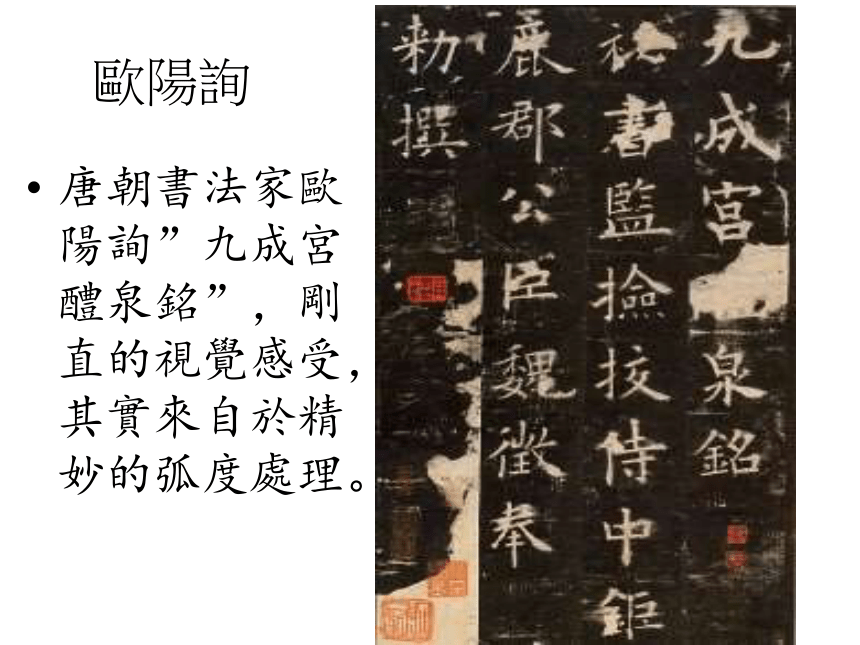 歐陽詢
•唐朝書法家歐
陽詢”九成宮
醴泉銘”，剛
直的視覺感受，
其實來自於精
妙的弧度處理。
九成宮泉銘
秘書監撿挍侍中鉅
鹿郡公臣魏徵奉
勑撰